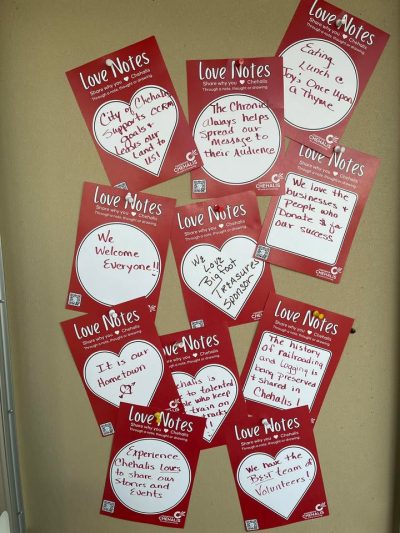 Love Notes
Share why you ♥ Chehalis
Through a note, thought or drawing
City of Chehalis
Supports CCRM
goals &
Leases our
Land to
us!
Love Notes
Share why you ♥ Chehalis
Through a note, thought or drawing.
The Chronicle
always helps
Spread our
Message to
their Audience
CHEHALIS
Through a note, thought or drawing.
Eating
Lunch @
Joy's Once Upon
A Thyme
We love the
businesses &
People who
Donate
our success
CHEHALIS
Love Notes
Share why you ♥ Chehalis
Through a note, thought or drawing.
We
Welcome
Everyone!!
Love Notes
Share why you ♥ Chehalis
Through a note, thought or drawing.
We
Love
Bigfoot
Treasures
Sponsor
Love Notes
Share why you ♥ Chehalis
Through a note, thought or drawing.
The history
of railroading
and Logging is
being preserved
& shared in
Chehalis!
Love Notes
Share why you ♥ Chehalis
Through a note, thought or drawing.
It is our
Hometown
Love Notes
Share why you ♥ Chehalis
Through a note, thought or drawing.
Chehalis is
to talented
who keep
train on
Love Notes
Share why you ♥ Chehalis
Through a note, thought or drawing.
Experience
Chehalis Loves
to share our
Stories and
Events
CHEHALIS
Love Notes
Share why you ♥ Chehalis
Through a note, thought or drawing.
We have the
Best team of
Volunteers!